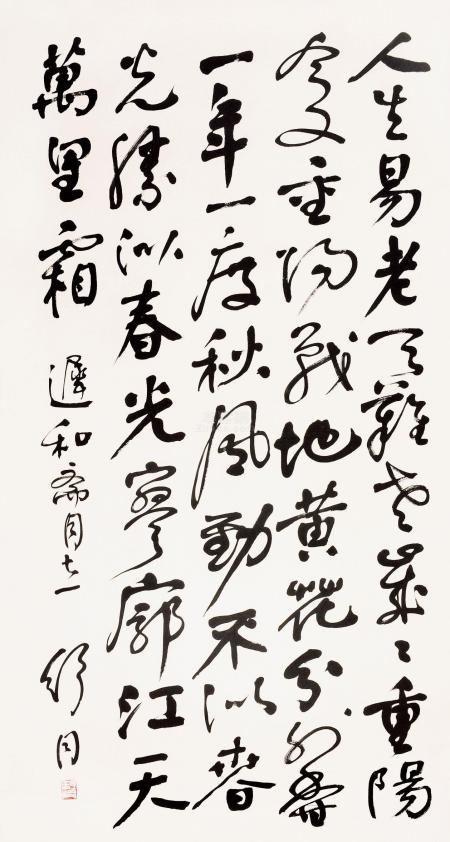 人生易老天難老歲〻重陽
今又重陽戰地黃花分外香
一年一度秋風勁不似春
光勝似春光寥廓江天
萬里霜 遲和齋同志 舒同